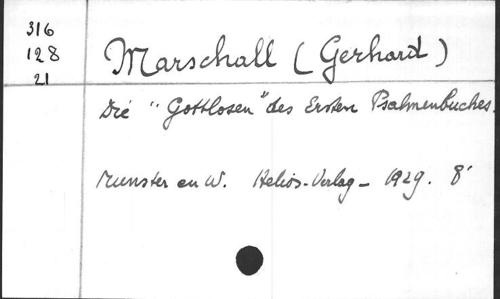 316
128
21
Marschall (Gerhard)
Die "Gottlosen" des Ersten Psalmenbuches.
Munster en W. Helios-Verlag - 1929. 8°